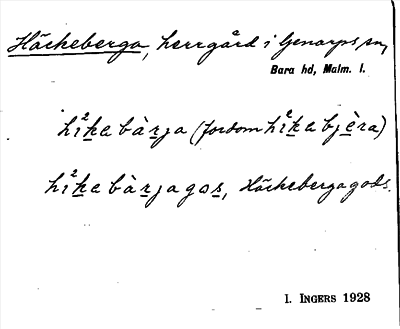 Häckeberga, herrgård i Genarps sn,
Bara hd, Malm. l.
hi²ka bàrja (fordom hi²ka bjèra)
hi²ka bàrja gos, Häckeberga gods.
I. INGERS 1928